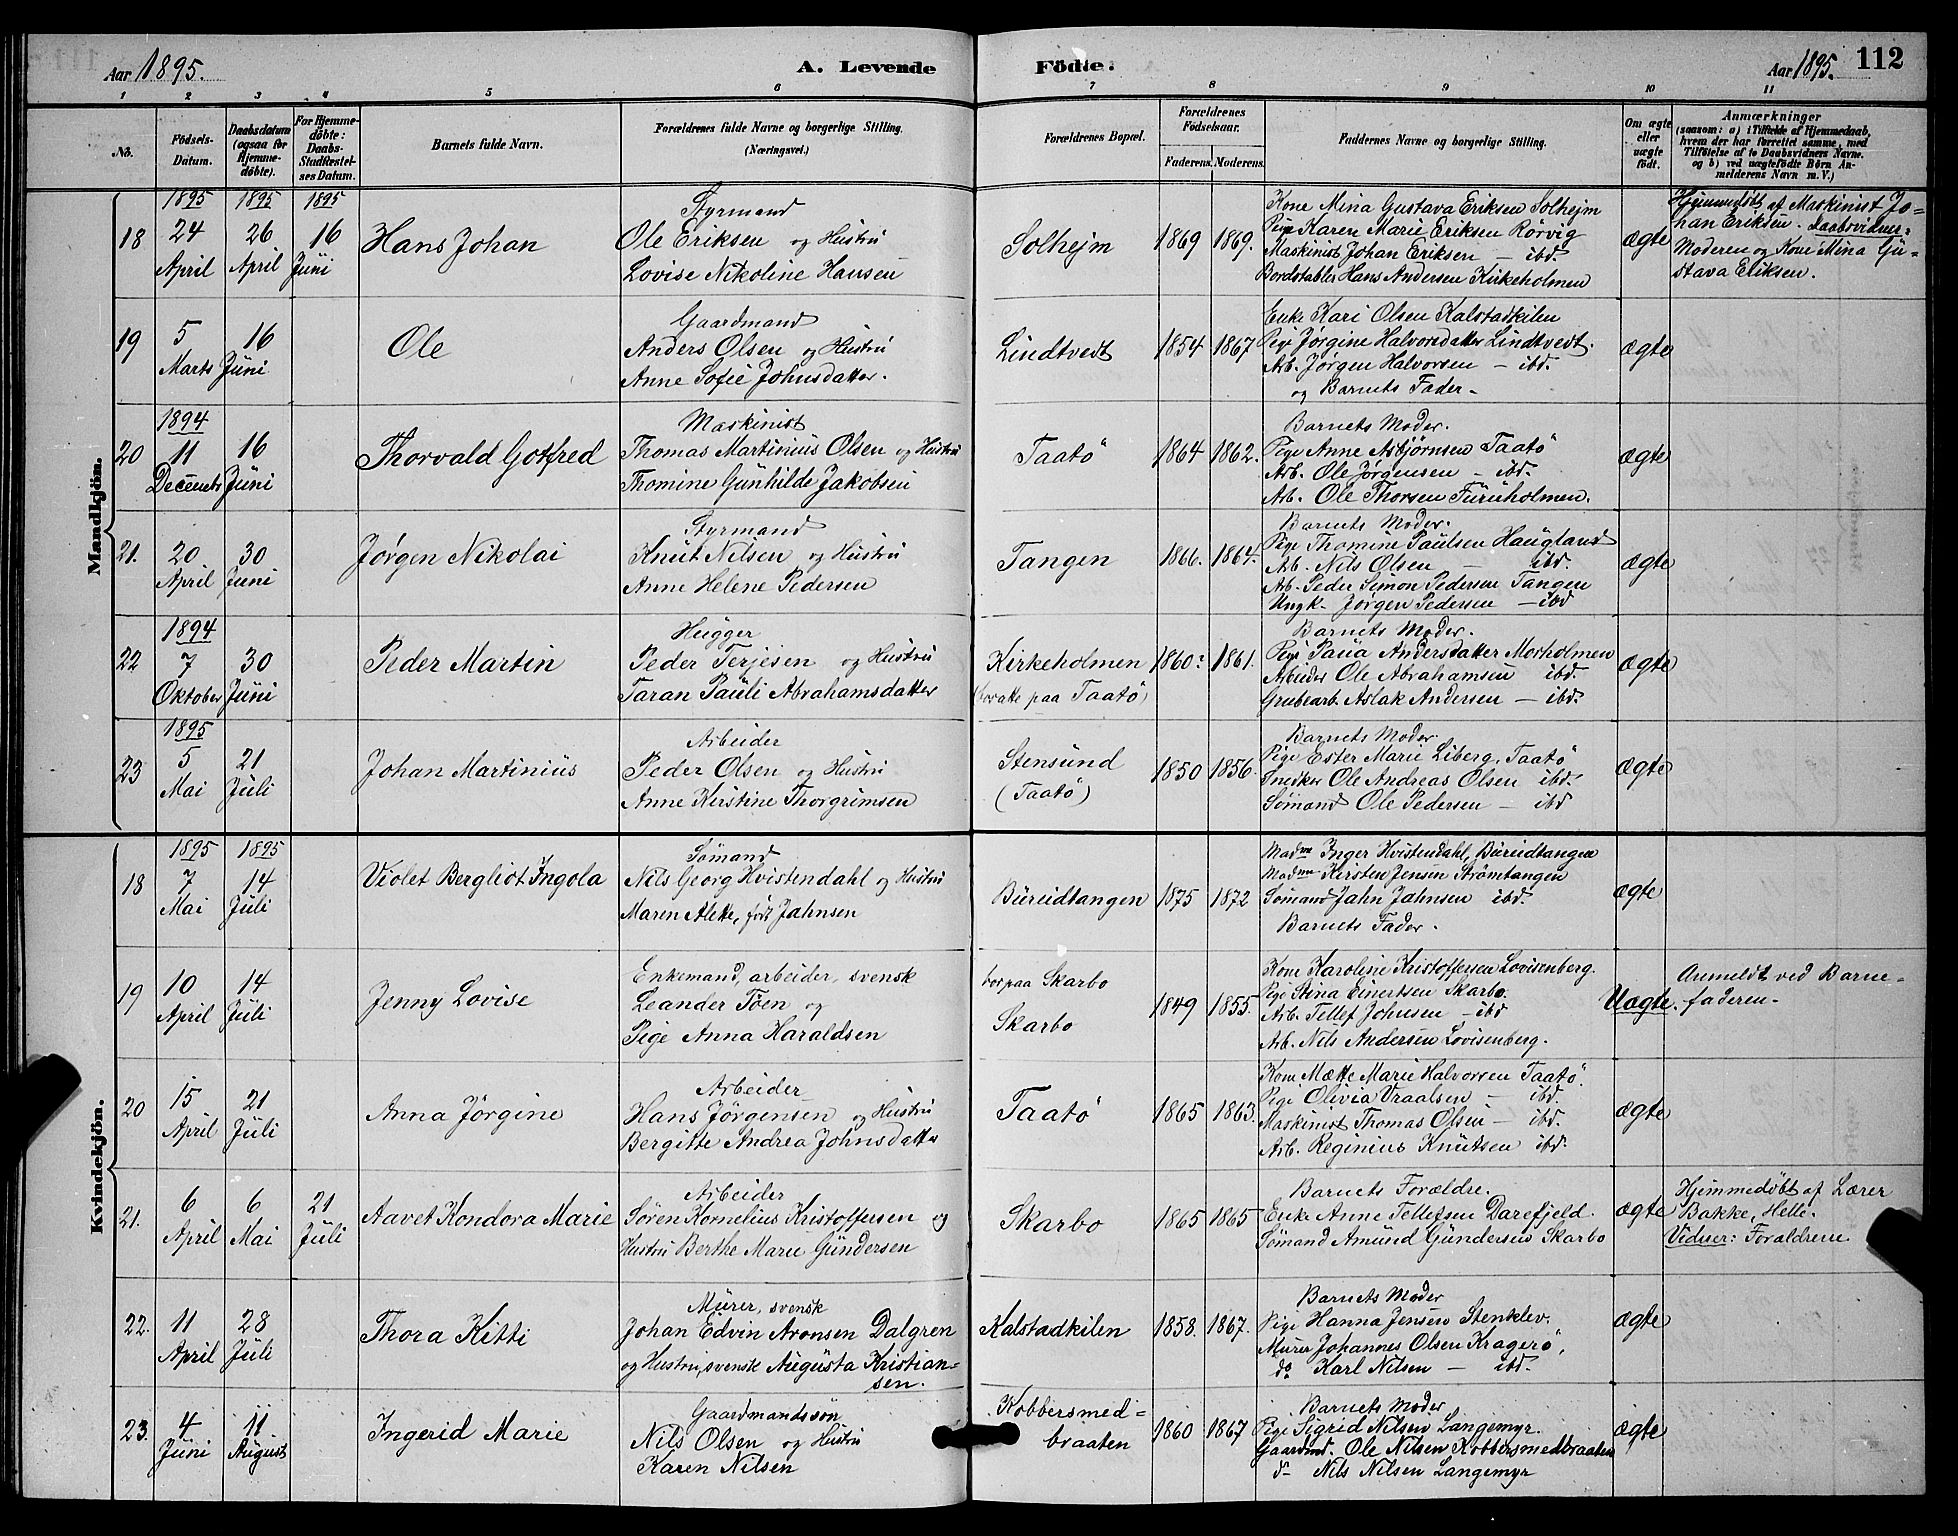 Aar 1895.
A. Levende Födte.
Aar 1895. 112
1 2 3 4 5 6 7 8 9 10 11
No.
Födsels-Datum.
Daabsdatum (ogsaa for Hjemme-döbte).
For Hjemme-döbte: Daabs-Stadfæstel-ses Datum.
Barnets fulde Navn.
Forældrenes fulde Navne og borgerlige Stilling.
(Næringsvei.)
Forældrenes Bopæl.
Forældrenes Födselsaar.
Faderens. Moderens.
Faddernes Navne og borgerlige Stilling.
Om ægte eller uægte födt.
Anmærkninger
(saasom: a) i Tilfælde af Hjemmedaab, hvem der har forrettet samme, med Tilföielse af to Daabsvidners Navne. og b) ved uægtefödte Börn An-melderens Navn m. V.)
Mandkjön.
1895 1895 1895
18
24 April
26 April
16 Juni
Hans Johan
Styrmand
Ole Eriksen og Hustru
Lovise Nikoline Hansen
Solhejm
1869 1869.
Kone Mina Gustava Eriksen Solhejm
Pige Karen Marie Eriksen Rörvig
Maskinist Johan Eriksen — ibd.
Bordstabler Hans Andersen Kirkeholmen
ægte
Hjemmedöbt af Maskinist Jo=
han Eriksen. Daabsvidner:
Moderen og Kone Mina Gu=
stava Eriksen.
19
5 Marts
16 Juni
Ole
Gaardmand
Anders Olsen og Hustru
Anne Sofie Johnsdatter.
Lindtvedt
1854 1867
Enke Kari Olsen Kalstadkilen
Pige Jørgine Halvorsdatter Lindtvedt.
Arb. Jørgen Halvorsen — ibd.
og Barnets Fader.
ægte
1894
20
11 Decembr
16 Juni
Thorvald Gotfred
Maskinist
Thomas Martinius Olsen og Hustru
Thomine Gunhilde Jakobsen
Taatö
1864 1862.
Barnets Moder.
Pige Anne Asbjørnsen Taatö
Arb. Ole Jørgensen — ibd.
Arb. Ole Thorsen Furuholmen.
ægte
21.
20 April
30 Juni
Jørgen Nikolai
Styrmand
Knut Nilsen og Hustru
Anne Helene Pedersen
Tangen
1866. 1864.
Barnets Moder.
Pige Thomine Paulsen Haugland
Arb. Nils Olsen — ibd.
Arb. Peder Simon Pedersen Tangen
Ungk. Jørgen Pedersen — ibd
ægte
1894
22
7 Oktober
30 Juni
Peder Martin
Hugger
Peder Terjesen og Hustru
Taran Pauli Abrahamsdatter
Kirkeholmen
paa Taatö)
1860? 1861.
Barnets Moder.
Pige Paua Andersdatter Morholmen
Arbeider Ole Abrahamsen ibd.
Grubearb. Aslak Andersen — ibd.
ægte
1895
23
5 Mai
21 Juli
Johan Martinius
Arbeider
Peder Olsen og Hustru
Anne Kirstine Thorgrimsen
Stensund
(Taatö)
1850 1856.
Barnets Moder.
Pige Ester Marie Liberg, Taatö
Snedker Ole Andreas Olsen ibd.
Sømand Ole Pedersen — ibd
ægte
Kvindekjön.
1895 1895
18
7 Mai
14 Juli
Violet Bergliot Ingola
Sømand
Nils Georg Hvistendahl og Hustru
Maren Alette, født Jahnsen
Bureidtangen
1875 1872
Madme Inger Hvistendahl, Bureidtangen
Madme Kirsten Jensen Strømtangen
Sømand Jahn Jahnsen ibd.
Barnets Fader.
ægte
19
10 April
14 Juli
Jenny Lovise
Enkemand, arbeider, svensk
Leander Töen og
Pige Anna Haraldsen
bor paa Skarbo
Skarbo
1849 1855.
Kone Karoline Kristoffersen Lovisenberg.
Pige Stina Einertsen Skarbo.
Arb. Tellef Johnsen — ibd
Arb. Nils Andersen Lovisenberg.
Uægte.
Anmeldt ved Barne-
faderen.
20
15 April
21 Juli
Anna Jörgine
Arbeider
Hans Jörgensen og Hustru
Bergitte Andrea Johnsdatter
Taatö
1865 1863.
Kone Mætte Marie Halvorsen Taatö.
Pige Olivia Vraalsen — ibd.
Maskinist Thomas Olsen — ibd.
Arb. Reginius Knutsen ibd.
ægte
21.
6 April
6 Mai
21 Juli
Aavet Kondora Marie
Arbeider
Søren Kornelius Kristoffersen og
Hustru Berthe Marie Gundersen
Skarbo
1865 1865
Barnets Forældre.
Enke Anne Tellefsen Darefjeld.
Sømand Amund Gundersen Skarbo
ægte
Hjemmedøbt af Lærer
Bakke, Helle.
Vidner: Forældrene
22.
11 April
28 Juli
Thora Kitti
Murer, svensk
Johan Edvin Aronsen Dalgren
og Hustru, svenske Augusta Kristian=
sen.
Kalstadkilen
1858. 1867.
Barnets Moder
Pige Hanna Jensen Stenklev.
Murer Johannes Olsen Kragerö,
do Karl Nilsen — ibd.
ægte
23.
4 Juni
11 August
Ingerid Marie
Gaardmandssön
Nils Olsen og Hustru
Karen Nilsen
Kobbersmed=
braaten
1860 1867
Barnets Moder
Pige Sigrid Nilsen Langemyr.
Gaardmd. Ole Nilsen Kobbersmedbraaten
d— Nils Nilsen Langemyr
ægte